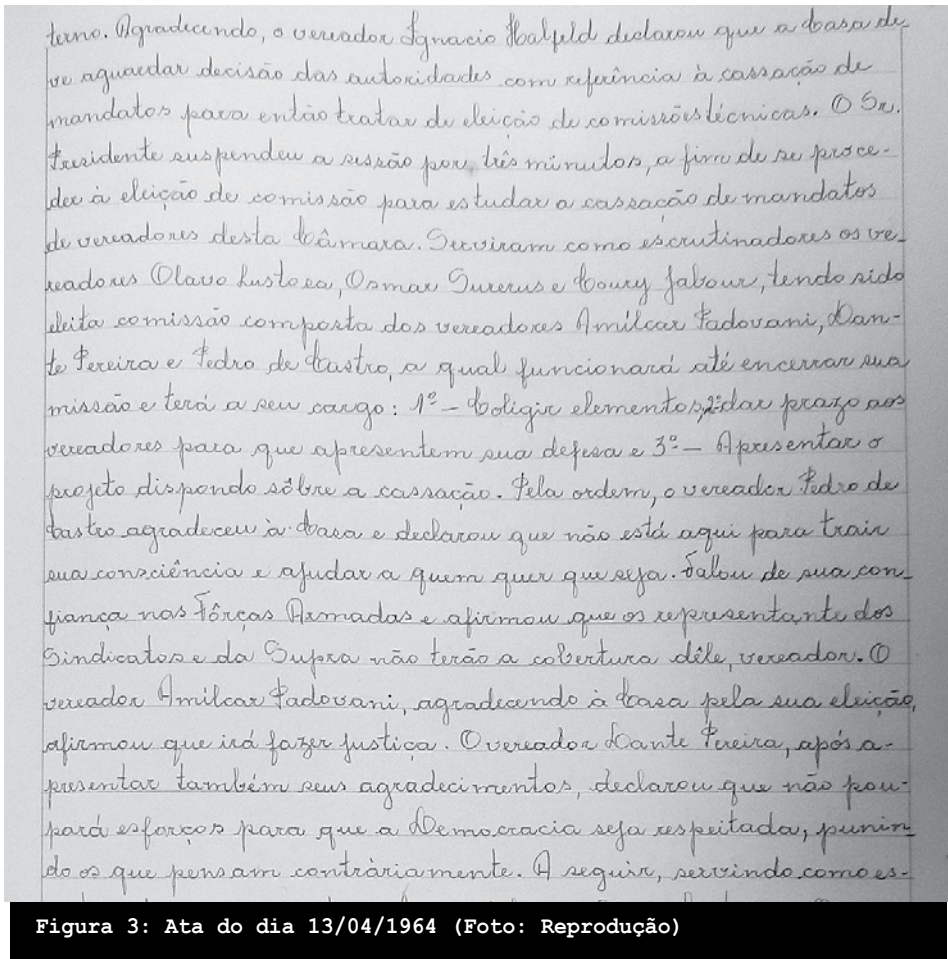 terno. Agradecendo, o vereador Ignacio Halfeld declarou que a Casa de-
ve aguardar decisão das autoridades com referência à cassação de
mandatos para então tratar de eleição de comissões técnicas. O Sr.
Presidente suspendeu a sessão por três minutos, a fim de se proce-
der à eleição de comissão para estudar a cassação de mandatos
de vereadores desta Câmara. Serviram como escrutinadores os ve-
readores Olavo Lustosa, Osmar Surerus e Coury Jabour, tendo sido
eleita comissão composta dos vereadores Amilcar Padovani, Dan-
te Pereira e Pedro de Castro, a qual funcionará até encerrar sua
missão e terá a seu cargo: 1º - Coligir elementos, 2º dar prazo aos
vereadores para que apresentem sua defesa e 3º - Apresentar o
projeto dispondo sôbre a cassação. Pela ordem, o vereador Pedro de
Castro agradeceu à Casa e declarou que não está aqui para trair
sua consciência e ajudar a quem quer que seja. Falou de sua con-
fiança nas Fôrças Armadas e afirmou que os representante dos
Sindicatos e da Supra não terão a cobertura dêle, vereador. O
vereador Amilcar Padovani, agradecendo à Casa pela sua eleição,
afirmou que irá fazer justiça. O vereador Dante Pereira, após a-
presentar também seus agradecimentos, declarou que não pou-
pará esforços para que a Democracia seja respeitada, punin-
do os que pensam contràriamente. A seguir, servindo como es-
Figura 3: Ata do dia 13/04/1964 (Foto: Reprodução)